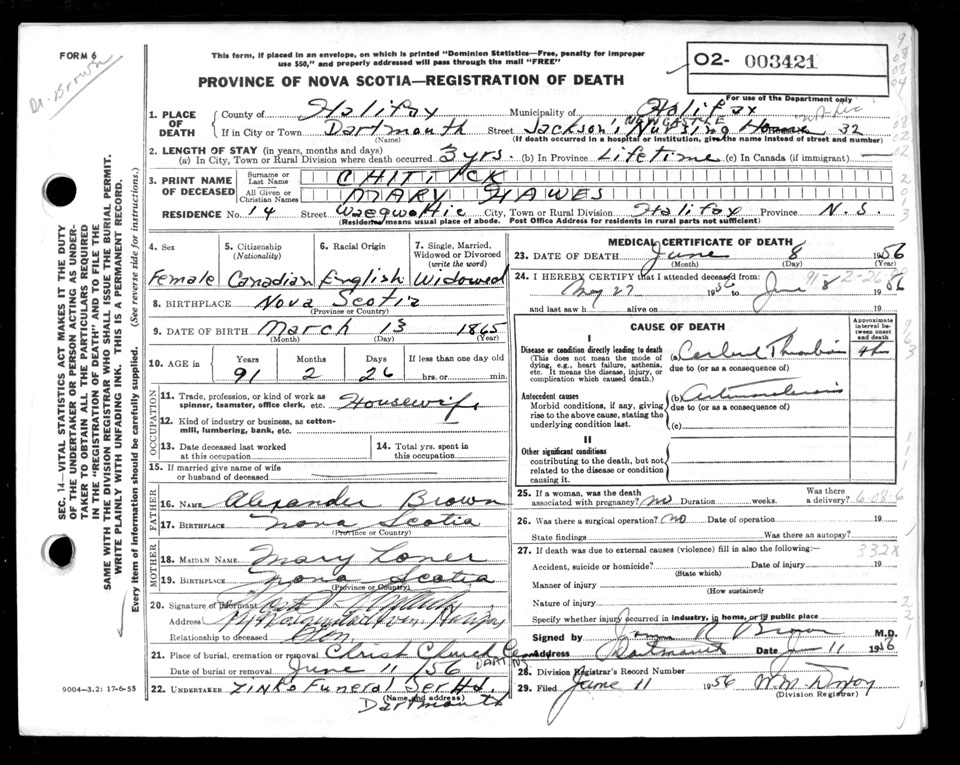 FORM 6
Dr. Brown
This form, if placed in an envelope, on which is printed "Dominion Statistics—Free, penalty for improper
use $50," and properly addressed will pass through the mail "FREE"
PROVINCE OF NOVA SCOTIA—REGISTRATION OF DEATH
02- 003421
For use of the Department only
1. PLACE OF DEATH
County of Halifax Municipality of Halifax
If in City or Town Dartmouth Street Jackson's Nursing Home 32
NEWCASTLE
(Name) (If death occurred in a hospital or institution, give the name instead of street and number)
2. LENGTH OF STAY (in years, months and days)
(a) In City, Town or Rural Division where death occurred 3 yrs. (b) In Province Lifetime (c) In Canada (if immigrant)
3. PRINT NAME OF DECEASED
Surname or Last Name CHITTICK
All Given or Christian Names MARY HAWES
RESIDENCE No. 14 Street City, Town or Rural Division Halifax Province N.S.
(Residence means usual place of abode. Post Office Address for residents in rural parts not sufficient)
4. Sex 5. Citizenship (Nationality) 6. Racial Origin 7. Single, Married, Widowed or Divorced (write the word)
Female Canadian English Widowed
8. BIRTHPLACE Nova Scotia
(Province or Country)
9. DATE OF BIRTH March 13 1865
(Month) (Day) (Year)
10. AGE in Years Months Days If less than one day old
91 2 26 hrs. or min.
OCCUPATION
11. Trade, profession, or kind of work as spinner, teamster, office clerk, etc. Housewife
12. Kind of industry or business, as cotton-mill, lumbering, bank, etc.
13. Date deceased last worked at this occupation 14. Total yrs. spent in this occupation
15. If married give name of wife or husband of deceased
FATHER
16. NAME Alexander Brown
17. BIRTHPLACE Nova Scotia
(Province or Country)
MOTHER
18. MAIDEN NAME Mary Loner
19. BIRTHPLACE Nova Scotia
(Province or Country)
20. Signature of Informant
Address Halifax
Relationship to deceased Son
21. Place of burial, cremation or removal Christ Church Cem
DART. NS
Date of burial or removal June 11 / 56
22. UNDERTAKER Zinks Funeral Ser. Ltd.
(Name and address)
Dartmouth
MEDICAL CERTIFICATE OF DEATH
23. DATE OF DEATH June 8 1956
(Month) (Day) (Year)
24. I HEREBY CERTIFY that I attended deceased from
May 27 1956 to June 8 1956
91-2-26
and last saw h alive on 19
CAUSE OF DEATH
Approximate interval between onset and death
I
Disease or condition directly leading to death
(This does not mean the mode of dying, e.g., heart failure, asthenia, etc. It means the disease, injury, or complication which caused death.)
(a) Cerebral Thrombosis
due to (or as a consequence of)
Antecedent causes
Morbid conditions, if any, giving rise to the above cause, stating the underlying condition last.
(b) Arteriosclerosis
due to (or as a consequence of)
(c)
II
Other significant conditions
contributing to the death, but not related to the disease or condition causing it.
25. If a woman, was the death associated with pregnancy? no Duration weeks. Was there a delivery?
6-08-6
26. Was there a surgical operation? no Date of operation 19
State findings Was there an autopsy?
27. If death was due to external causes (violence) fill in also the following:—
332X
Accident, suicide or homicide? Date of injury 19
(State which)
Manner of injury
(How sustained)
Nature of injury
Specify whether injury occurred in industry, in home, or in public place
Signed by James R Brown M.D.
Address Dartmouth Date June 11 1956
28. Division Registrar's Record Number
29. Filed June 11 1956
(Division Registrar)
9004-3.2: 17-6-55
SEC. 14—VITAL STATISTICS ACT MAKES IT THE DUTY
OF THE UNDERTAKER OR PERSON ACTING AS UNDER-
TAKER TO OBTAIN ALL THE PARTICULARS REQUIRED
IN THE "REGISTRATION OF DEATH" AND TO FILE THE
SAME WITH THE DIVISION REGISTRAR WHO SHALL ISSUE THE BURIAL PERMIT.
WRITE PLAINLY WITH UNFADING INK. THIS IS A PERMANENT RECORD.
Every item of information should be carefully supplied. (See reverse side for instructions.)